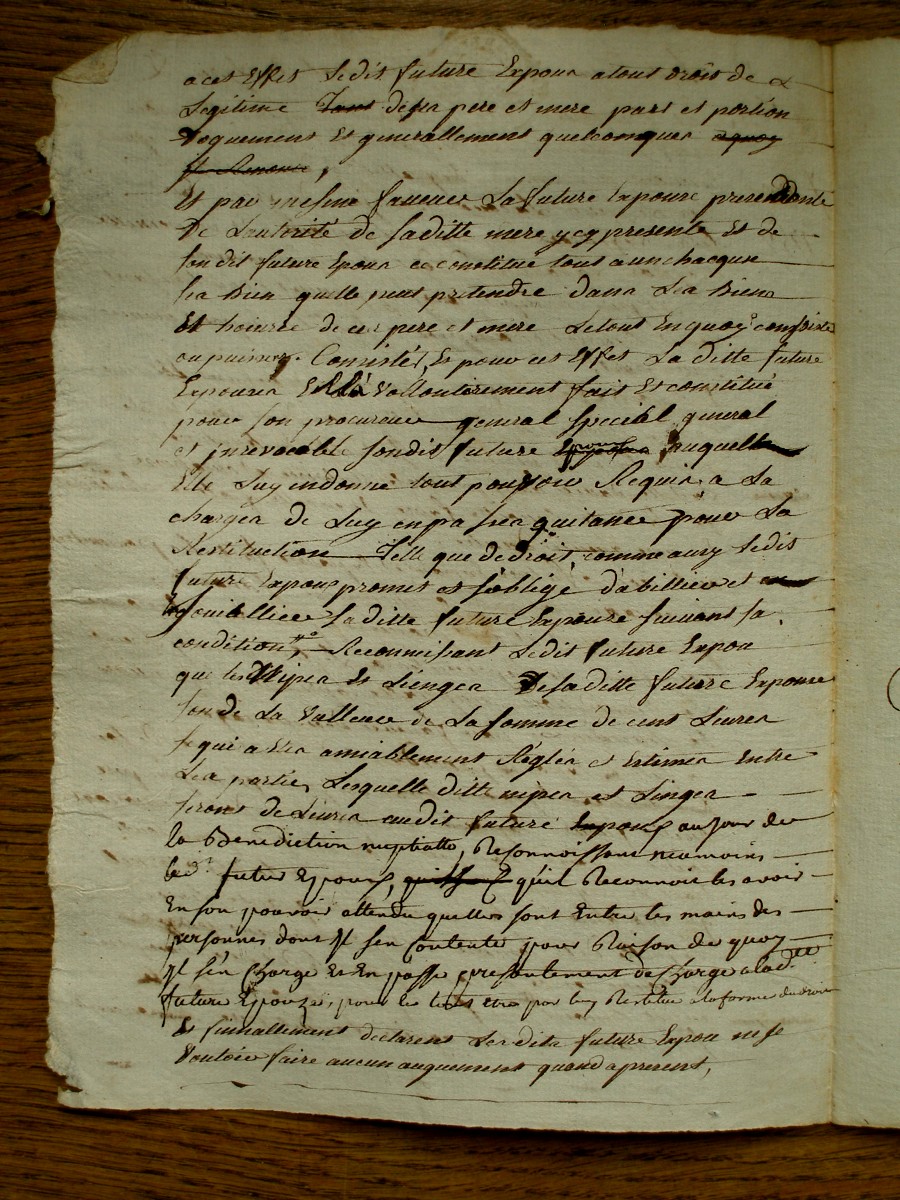 a cet Effet Ledit future Expoux a tout droit de
Legitime Tant desd pere et mere part et portion
et generallement quelconques a quoy
Il Renonce,
Et par mesme faveur La future Expouse
de Lautorité de saditte mere ycy presente Et de
sondit future Epoux ce constitue tout a un chacqun
sea Bien quelle peut pretendre dans Lea Biens
Et hoiries de ces pere et mere Le tout En quoy consiste
ou puisse Consister, Et pour cet Effet La ditte future
Expousea vollontairement fait Et constitué
pour son procureur general special general
et jnrevocable sondit future auquelle
Elle Luy en donne tout pouvoir Requis a La
charger de Luy en passer quitance pour La
Restituction Telle que de droit, comme aussy Ledit
future Expoux promet et s'oblige d'abillier et en
jouaillier saditte future Expouze suivant sa
condition, Reconnissant Ledit future Expou
que les Nipea Et Lienger de saditte future Expouse
son de La valleur de La somme de cent Livrea
ce qui a Eté amiablement Régléa et Estimea Entre
Lea parties, Lesquelle ditte nipea et Linger
seront de Livrea audit future Expoux au jour de
la Benediction nuptialle, Reconnoissant neamoins
led.t futur Epoux, qu'il Reconnoit les avoir
En son pouvoir attendu quelles sont Entre les mains des
personnes dont Jl s'en Contente pour Raison de quoy
Jl s'en Charge Et En passe presentement decharge a lad.tte
future Epouze, pour les luy Restitue a la forme du droit
Et finnallement declarent Lesdits future Expou ne se
vouloir faire aucun auguement quand a present,